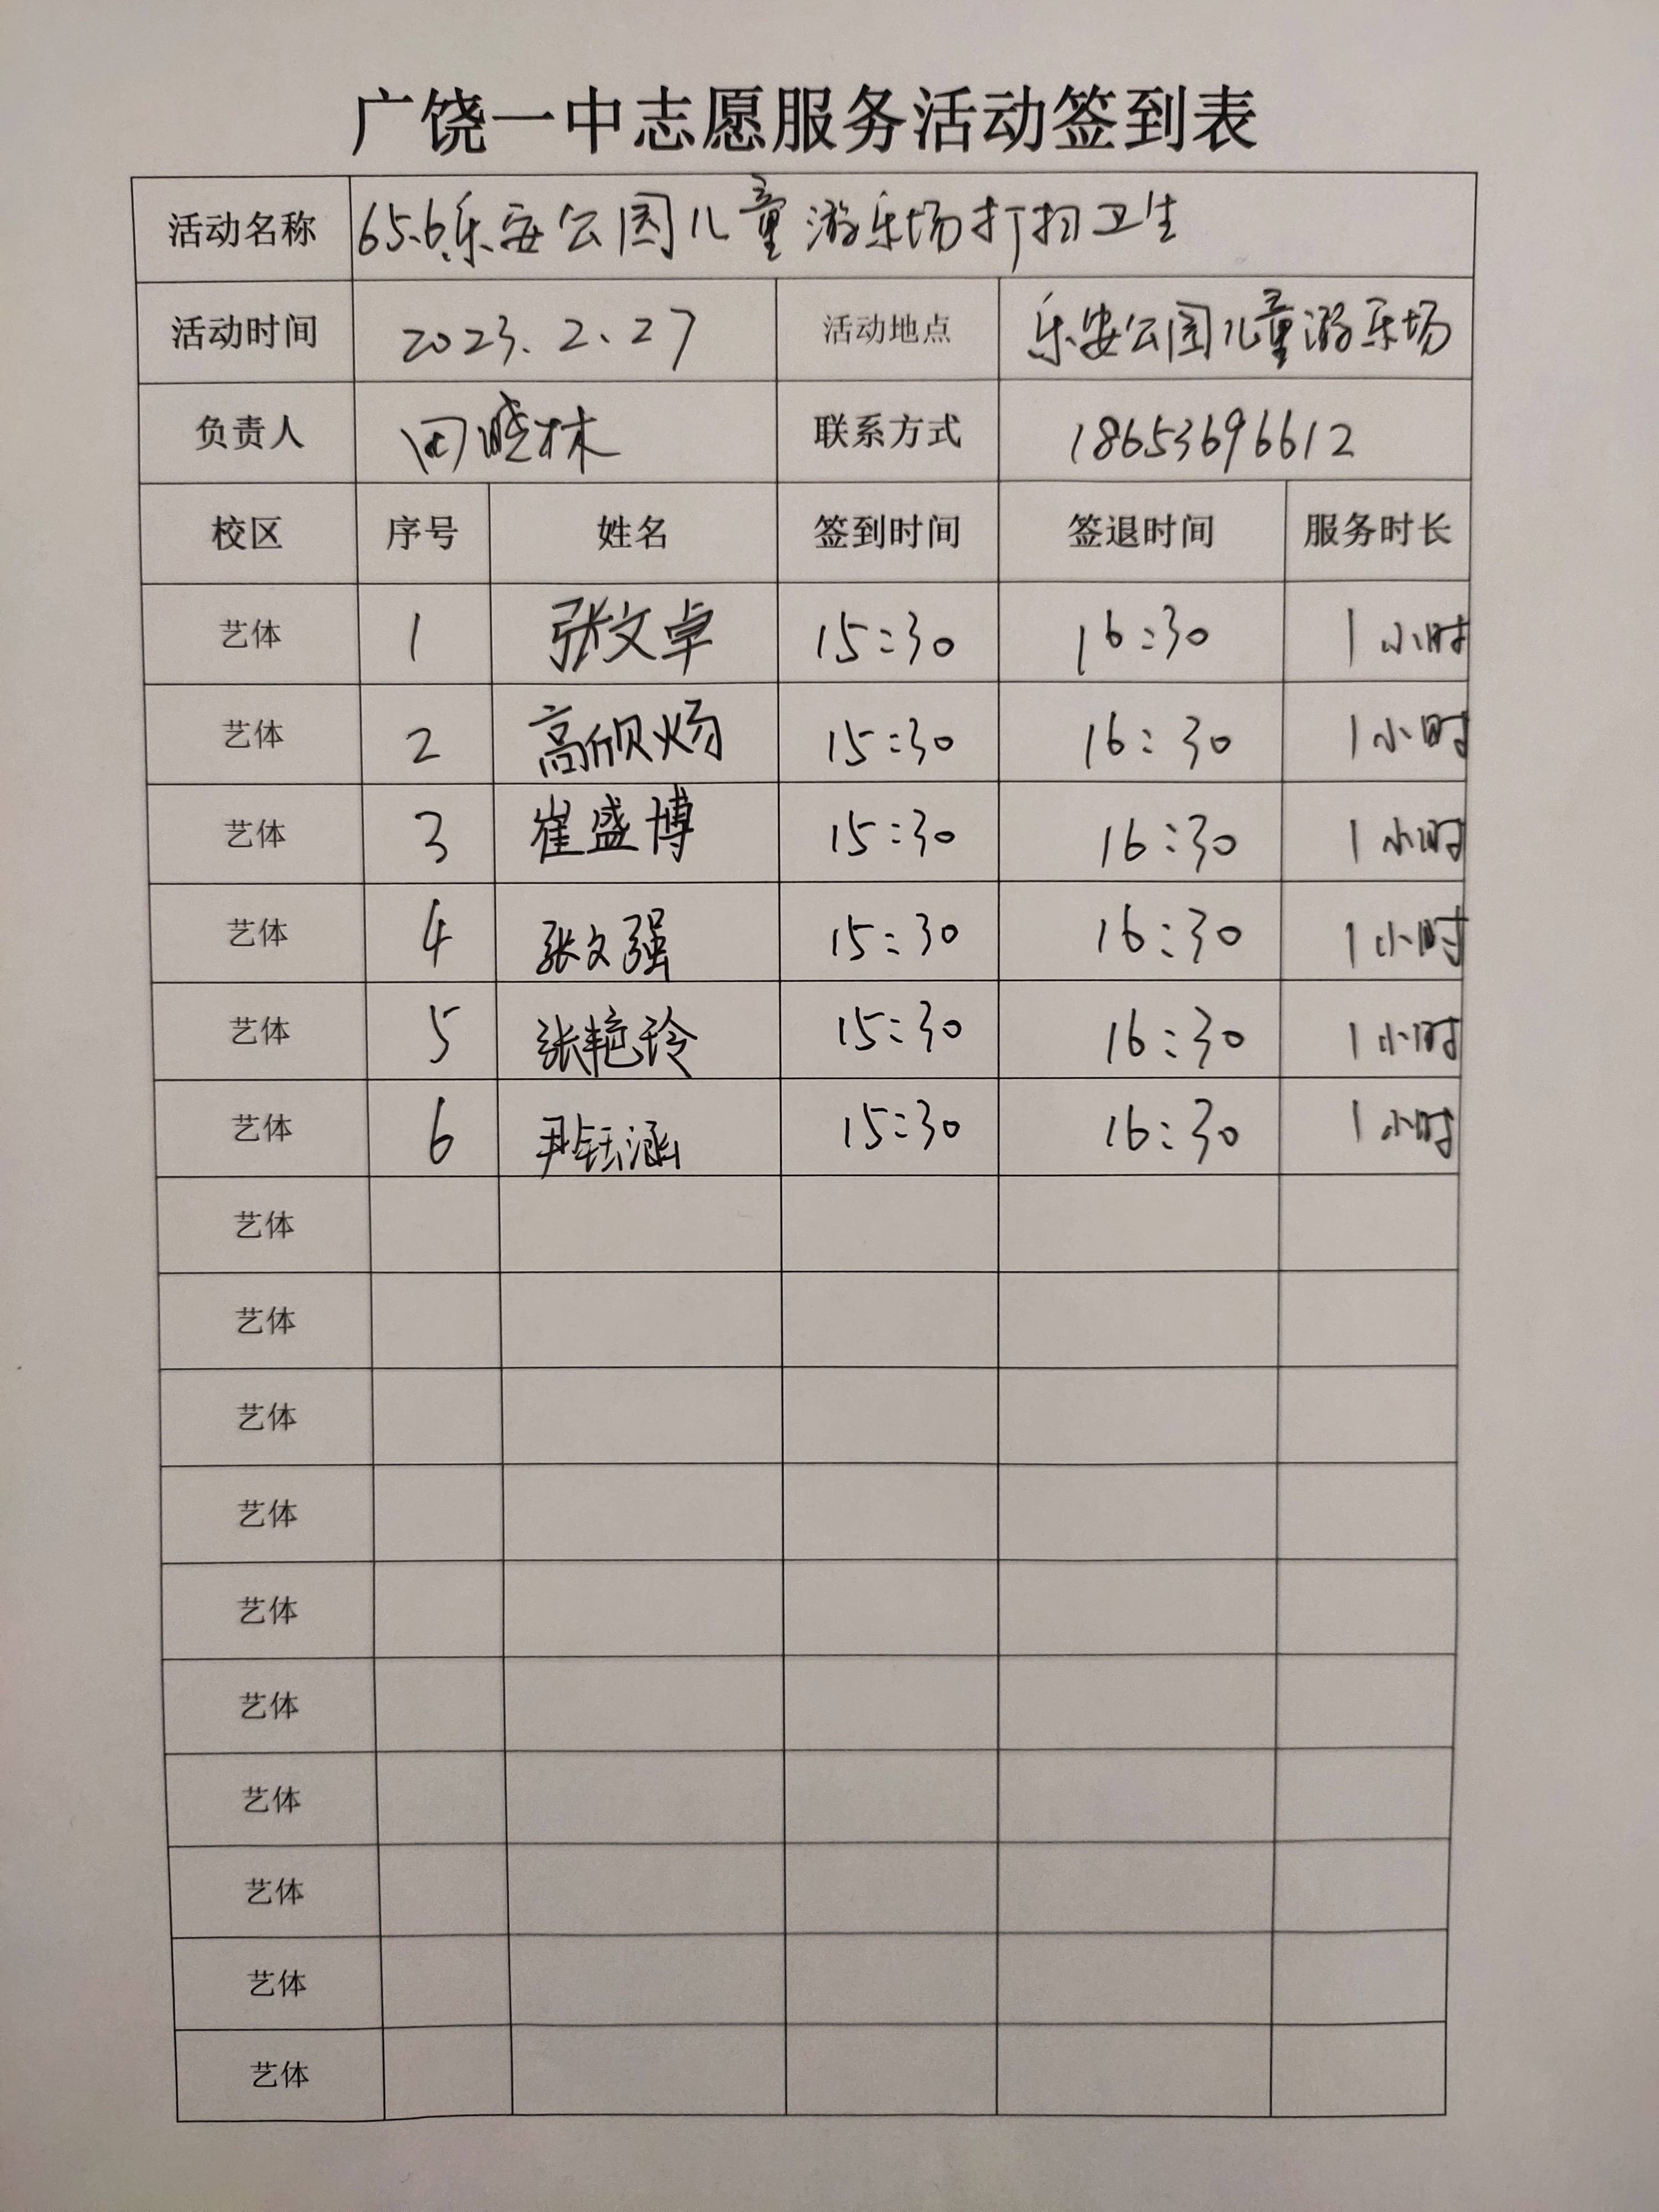 广饶一中志愿服务活动签到表
活动名称 65.6乐安公园儿童游乐场打扫卫生
活动时间 2023.2.27 活动地点 乐安公园儿童游乐场
负责人 田晓林 联系方式 18653696612
校区 序号 姓名 签到时间 签退时间 服务时长
艺体 1 张文卓 15:30 16:30 1小时
艺体 2 高颀炀 15:30 16:30 1小时
艺体 3 崔盛博 15:30 16:30 1小时
艺体 4 张文强 15:30 16:30 1小时
艺体 5 张艳玲 15:30 16:30 1小时
艺体 6 尹钰涵 15:30 16:30 1小时
艺体
艺体
艺体
艺体
艺体
艺体
艺体
艺体
艺体
艺体